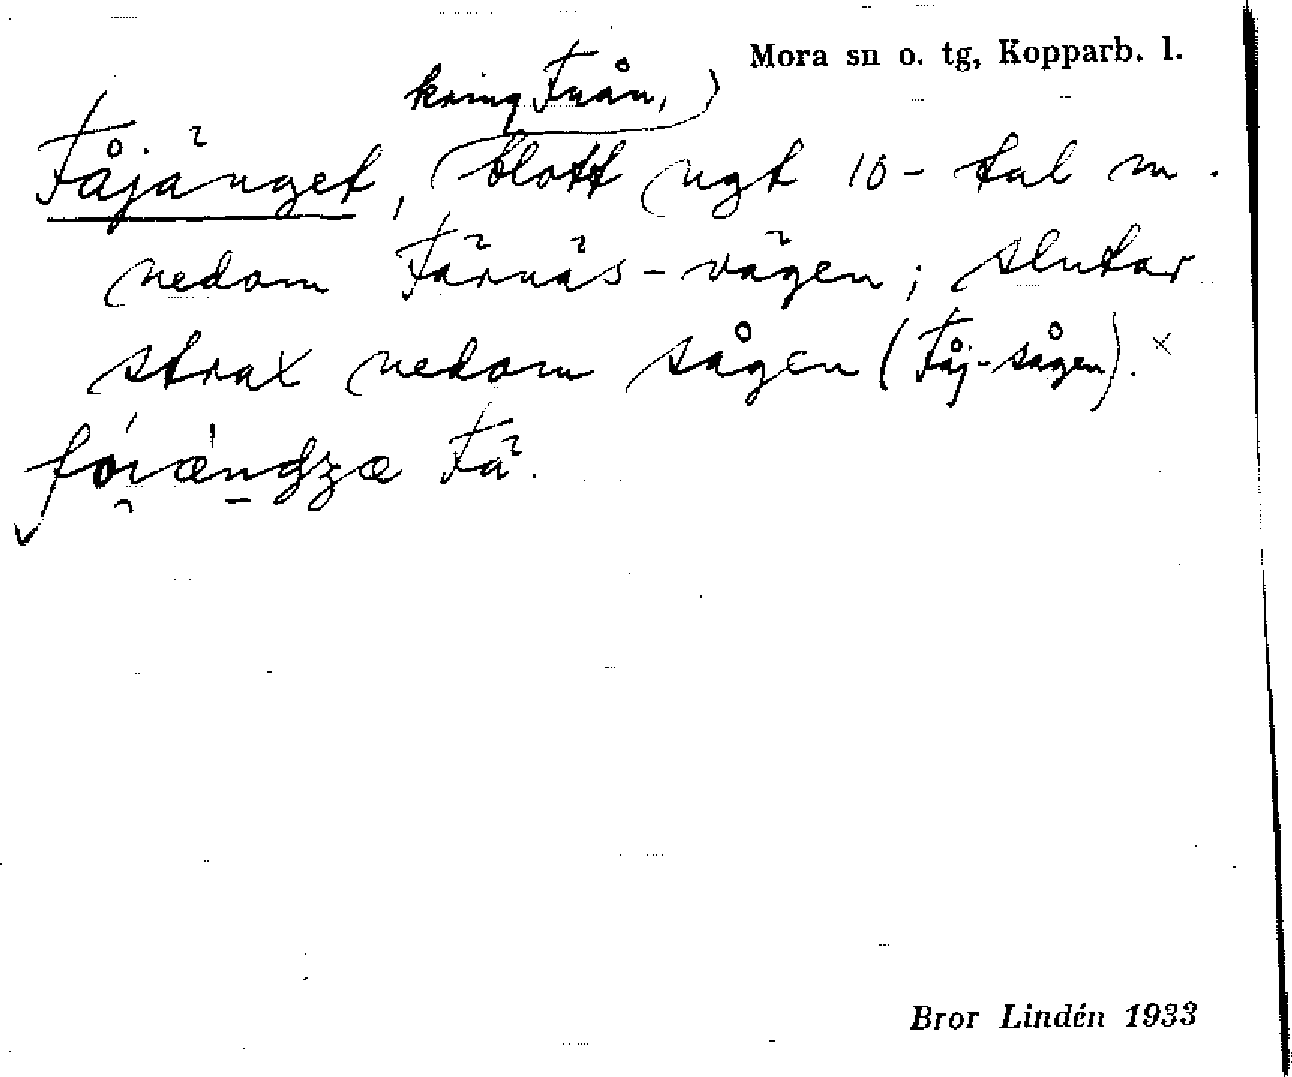 Mora sn o. tg, Kopparb. l.
kring Fuån,
Fåjänget, blott ngt 10-tal m.
nedom Färnäs-vägen; slutar
strax nedom sågen (Fåj-sågen). ×
Fä.
Bror Lindén 1933